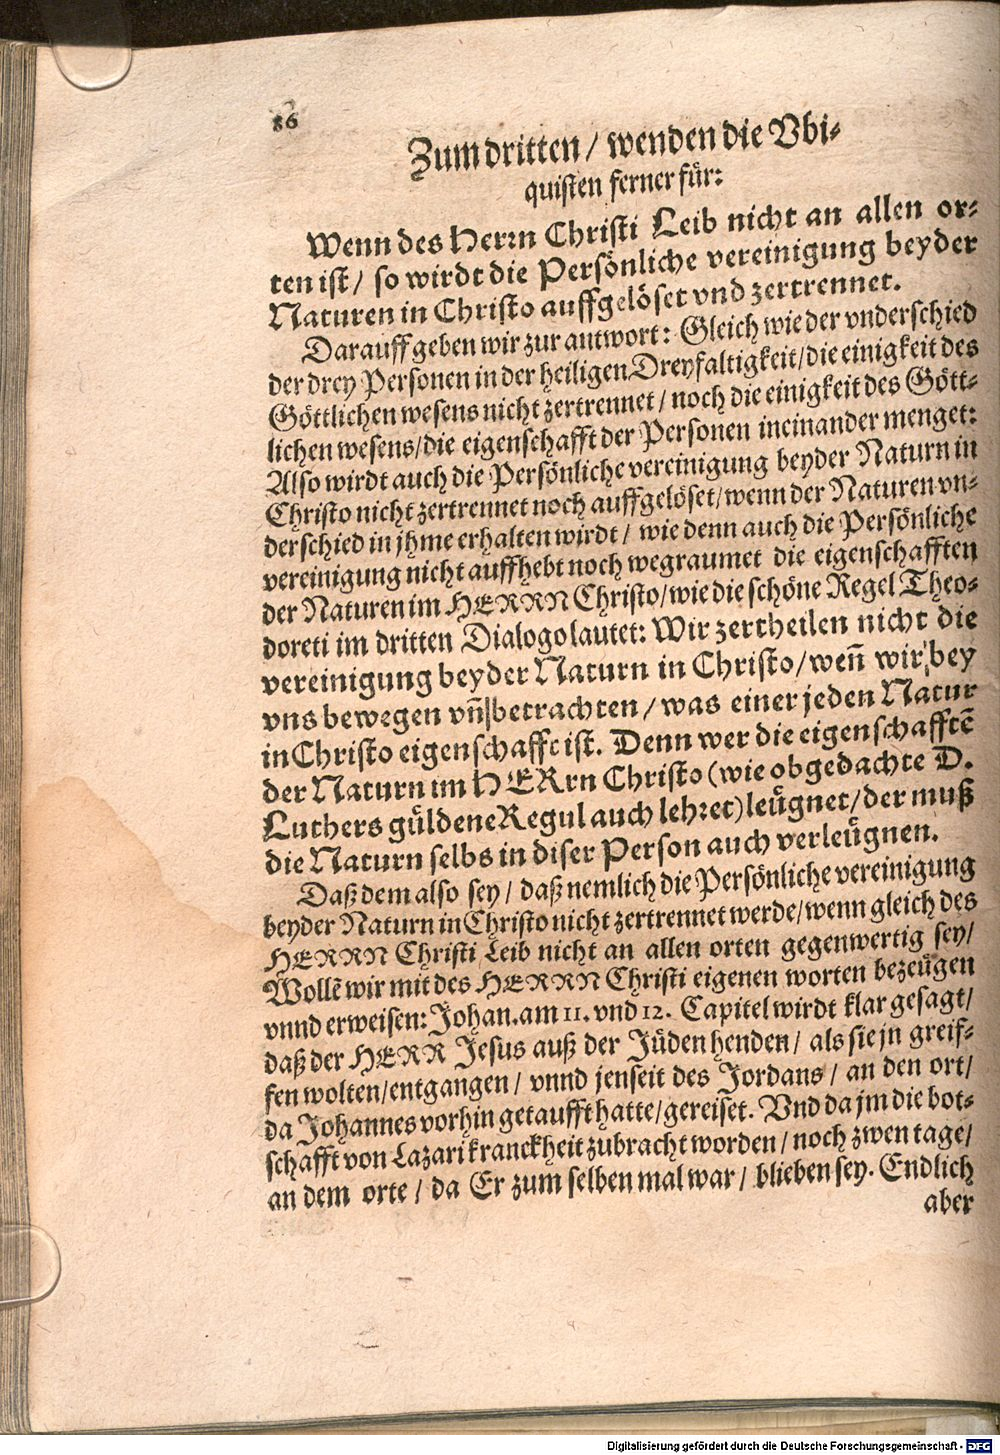 86
Zum dritten / wenden die Vbi-
quisten ferner für:
Wenn des Herrn Christi Leib nicht an allen or-
ten ist / so wirdt die Persönliche vereinigung beyder
Naturen in Christo auffgelöset vnd zertrennet.
Darauff geben wir zur antwort: Gleich wie der vnderschied
der drey Personen in der heiligen Dreyfaltigkeit / die einigkeit des
Göttlichen wesens nicht zertrennet / noch die einigkeit des Gött-
lichen wesens / die eigenschafft der Personen ineinander menget:
Also wirdt auch die Persönliche vereinigung beyder Naturn in
Christo nicht zertrennet noch auffgelöset / wenn der Naturen vn-
derschied in jhme erhalten wirdt / wie denn auch die Persönliche
vereinigung nicht auffhebt noch wegraumet die eigenschafften
der Naturen im HERRN Christo / wie die schöne Regel Theo-
doreti im dritten Dialogo lautet: Wir zertheilen nicht die
vereinigung beyder Naturn in Christo / weñ wir bey
vns bewegen vñ betrachten / was einer jeden Natur
in Christo eigenschafft ist. Denn wer die eigenschafftẽ
der Naturn im HERrn Christo (wie obgedachte D.
Luthers güldene Regul auch lehret) leügnet / der muß
die Naturn selbs in diser Person auch verleügnen.
Daß dem also sey / daß nemlich die Persönliche vereinigung
beyder Naturn in Christo nicht zertrennet werde / wenn gleich des
HERRN Christi Leib nicht an allen orten gegenwertig sey /
Wollẽ wir mit des HERRN Christi eigenen worten bezeügen
vnnd erweisen: Johan. am 11. vnd 12. Capitel wirdt klar gesagt /
daß der HERR Jesus auß der Jüden henden / als sie jn greif-
fen wolten / entgangen / vnnd jenseit des Jordans / an den ort /
da Johannes vorhin getaufft hatte / gereiset. Vnd da jm die bot-
schafft von Lazari kranckheit zubracht worden / noch zwen tage /
an dem orte / da Er zum selben mal war / blieben sey. Endlich
aber
Digitalisierung gefördert durch die Deutsche Forschungsgemeinschaft - DFG